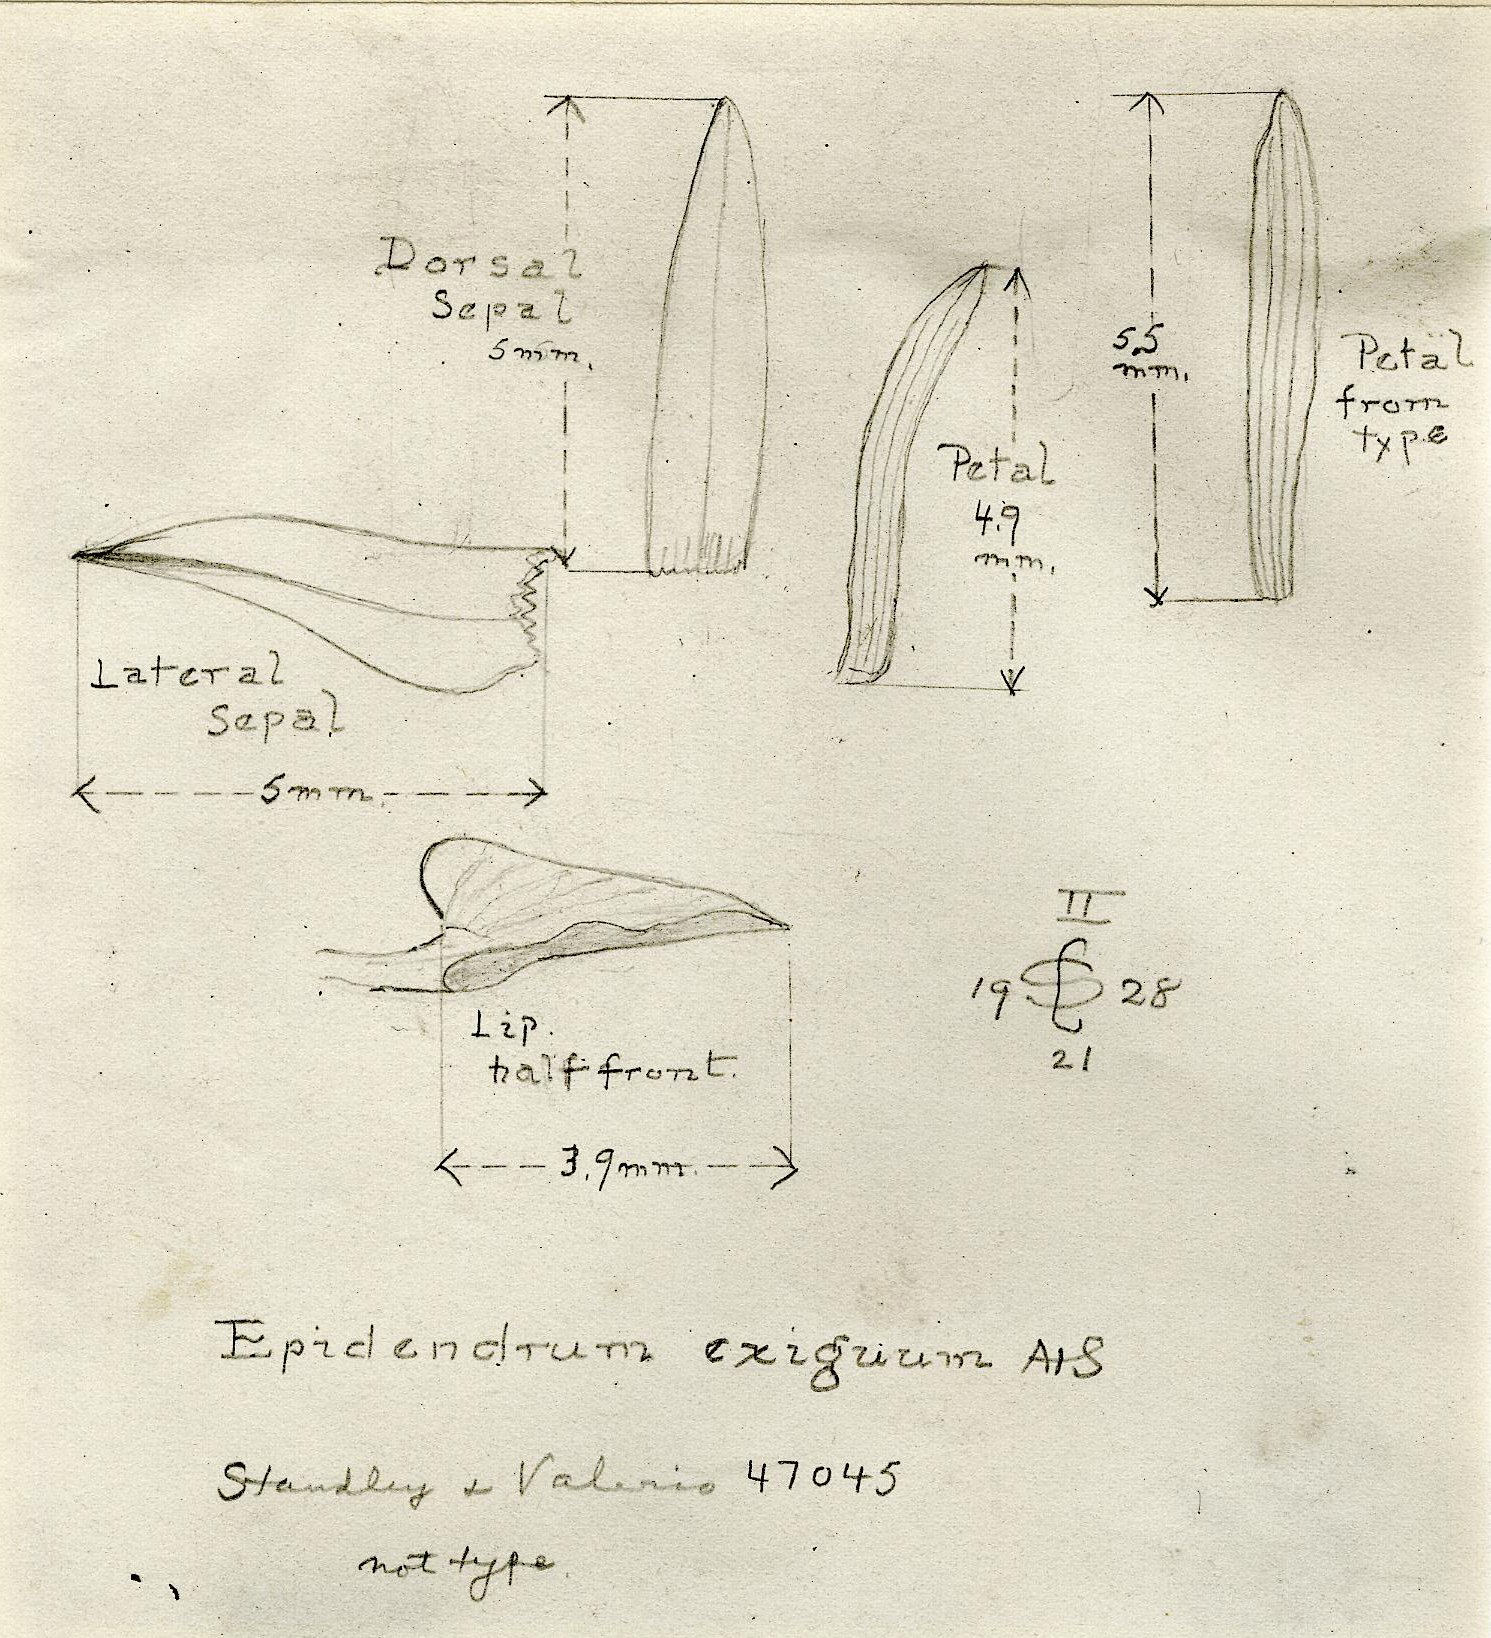 Dorsal
Sepal
5 mm.
Petal
4.9
mm.
5.5
mm.
Petal
from
type
Lateral
Sepal
5 mm.
Lip.
half front.
3.9 mm.
II
19 28
21
Epidendrum exiguum AHS
Standley & Valerio 47045
not type